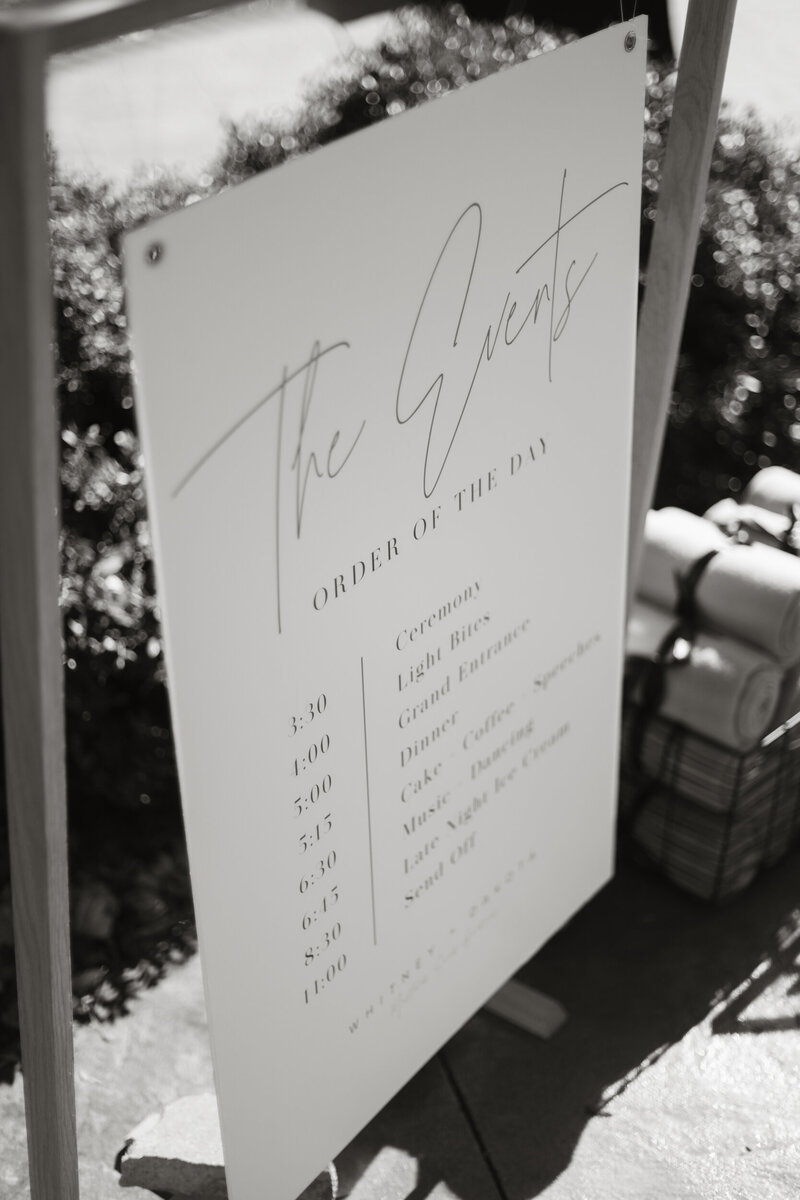 The Events
ORDER OF THE DAY
3:30 Ceremony
4:00 Light Bites
5:00 Grand Entrance
5:15 Dinner
6:30 Cake · Coffee · Speeches
6:45 Music · Dancing
8:30 Late Night Ice Cream
11:00 Send Off
WHITNEY + DAKOTA